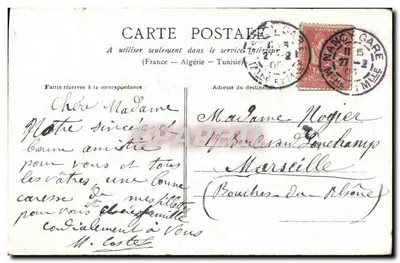 CARTE POSTALE
A utiliser seulement dans le service intérieur
(France - Algérie - Tunisie)
Partie réservée à la correspondance
Adresse du destinataire
Chère Madame
Notre sincère et
bonne amitié
pour vous et tous
les vôtres, une bonne
caresse de mes fillettes
pour vous et chère famille
cordialement à vous
M. Castel
Madame Nogier
Boulevard Longchamp
Marseille
(Bouches-du-Rhône)
NANCY GARE
MTHE ET MLLE
NANCY GARE